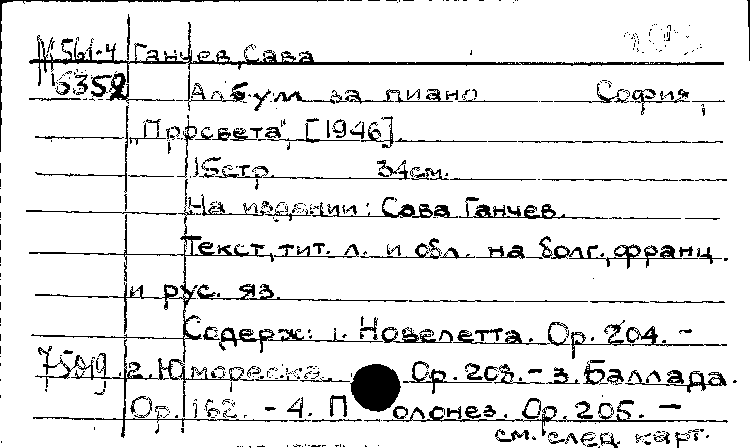 М561-4 Ганчев, Сава
6352 Албум за пиано София,
„Просвета“, [1946].
15стр. 34см.
На издании: Сава Ганчев.
Текст, тит. л. и обл. на болг., франц.
и рус. яз.
Содерж: 1. Новелетта. Op. 204. –
2. Юмореска. Op. 208. – 3. Баллада.
Op. 162. – 4. Полонез. Op. 205. –
см. след карт.